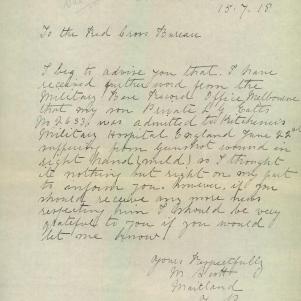 15.7.18
To the Red Cross Bureau
I beg to advise you that I have
received further word from the
Military Base Record Office Melbourne
that my son Private L G Catts
No 2633, was admitted to Kitcheners
Military Hospital England June 22nd
suffering from gunshot wound in
right hand (mild) so I thought
it nothing but right on my part
to inform you. however, if you
should receive any more news
respecting him I should be very
grateful to you if you would
let me know
Yours Respectfully
M Scott
Maitland